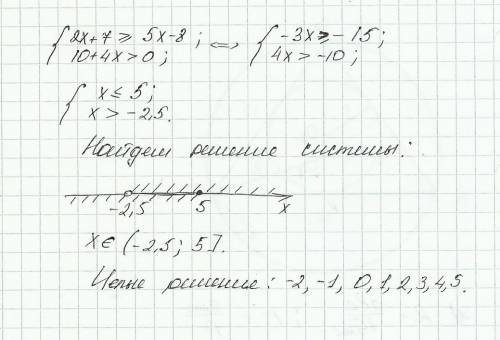 { 2x+7 ≥ 5x-8; <=> { -3x ≥ -15;
10+4x > 0; 4x > -10;
{ x ≤ 5;
x > -2,5.
Найдем решение системы:
-2,5 5 x
x ∈ (-2,5; 5].
Целые решение: -2, -1, 0, 1, 2, 3, 4, 5.